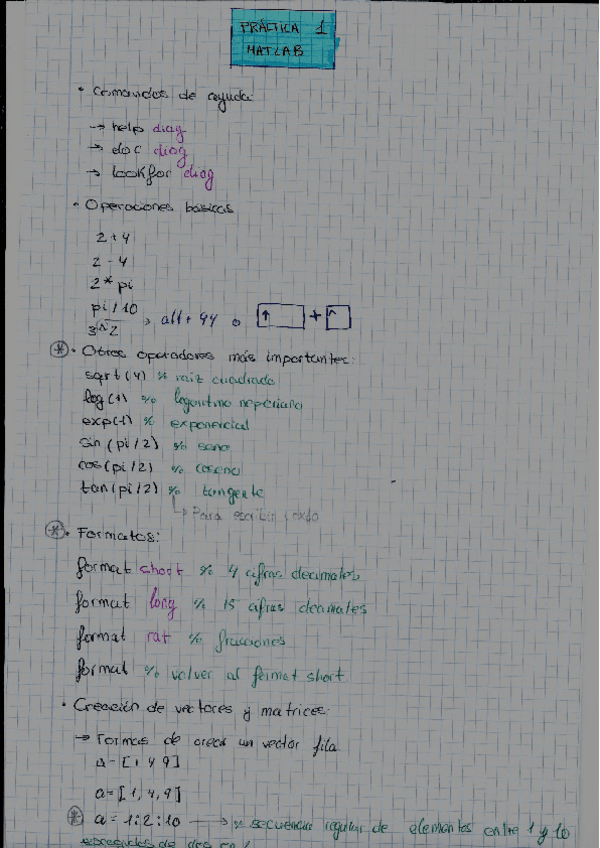 PRÁCTICA 1
MATLAB
• Comandos de ayuda:
→ help diag
→ doc diag
→ lookfor diag
• Operaciones básicas
2 + 4
2 - 4
2 * pi
pi / 10
3^2 → alt + 94 o ↑ + ^
* • Otros operadores más importantes:
sqrt (4) % raiz cuadrada
log (1) % logaritmo neperiano
exp(1) % exponencial
sin (pi / 2) % seno
cos (pi / 2) % coseno
tan (pi / 2) % tangente
↳ Para escribir texto
* • Formatos:
format short % 4 cifras decimales
format long % 15 cifras decimales
format rat % fracciones
format % volver al format short
• Creación de vectores y matrices:
→ Formas de crear un vector fila
a = [1 4 9]
a = [1, 4, 9]
* a = 1:2:10 → % secuencia regular de elementos entre 1 y 10
de dos en